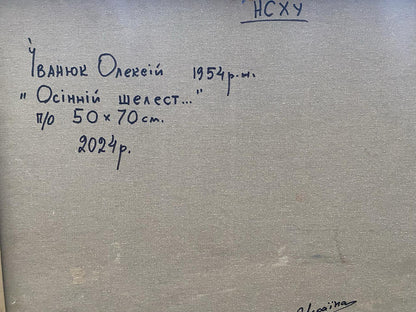 НСХУ
Іванюк Олексій 1954р.н.
„Осінній шелест..."
п/о 50×70см.
2024р.
Україна